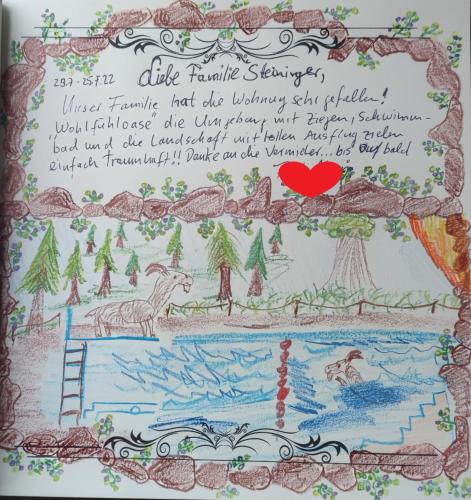 29.7 - 25.7.22 Liebe Familie Steininger,
Unser Familie hat die Wohnung sehr gefallen!
"Wohlfühloase" die Umgebung mit Ziegen, Schwimm-
bad und die Landschaft mit tollen Ausflug zielen
einfach traumhaft!! Danke an die Vermieter... bis bald